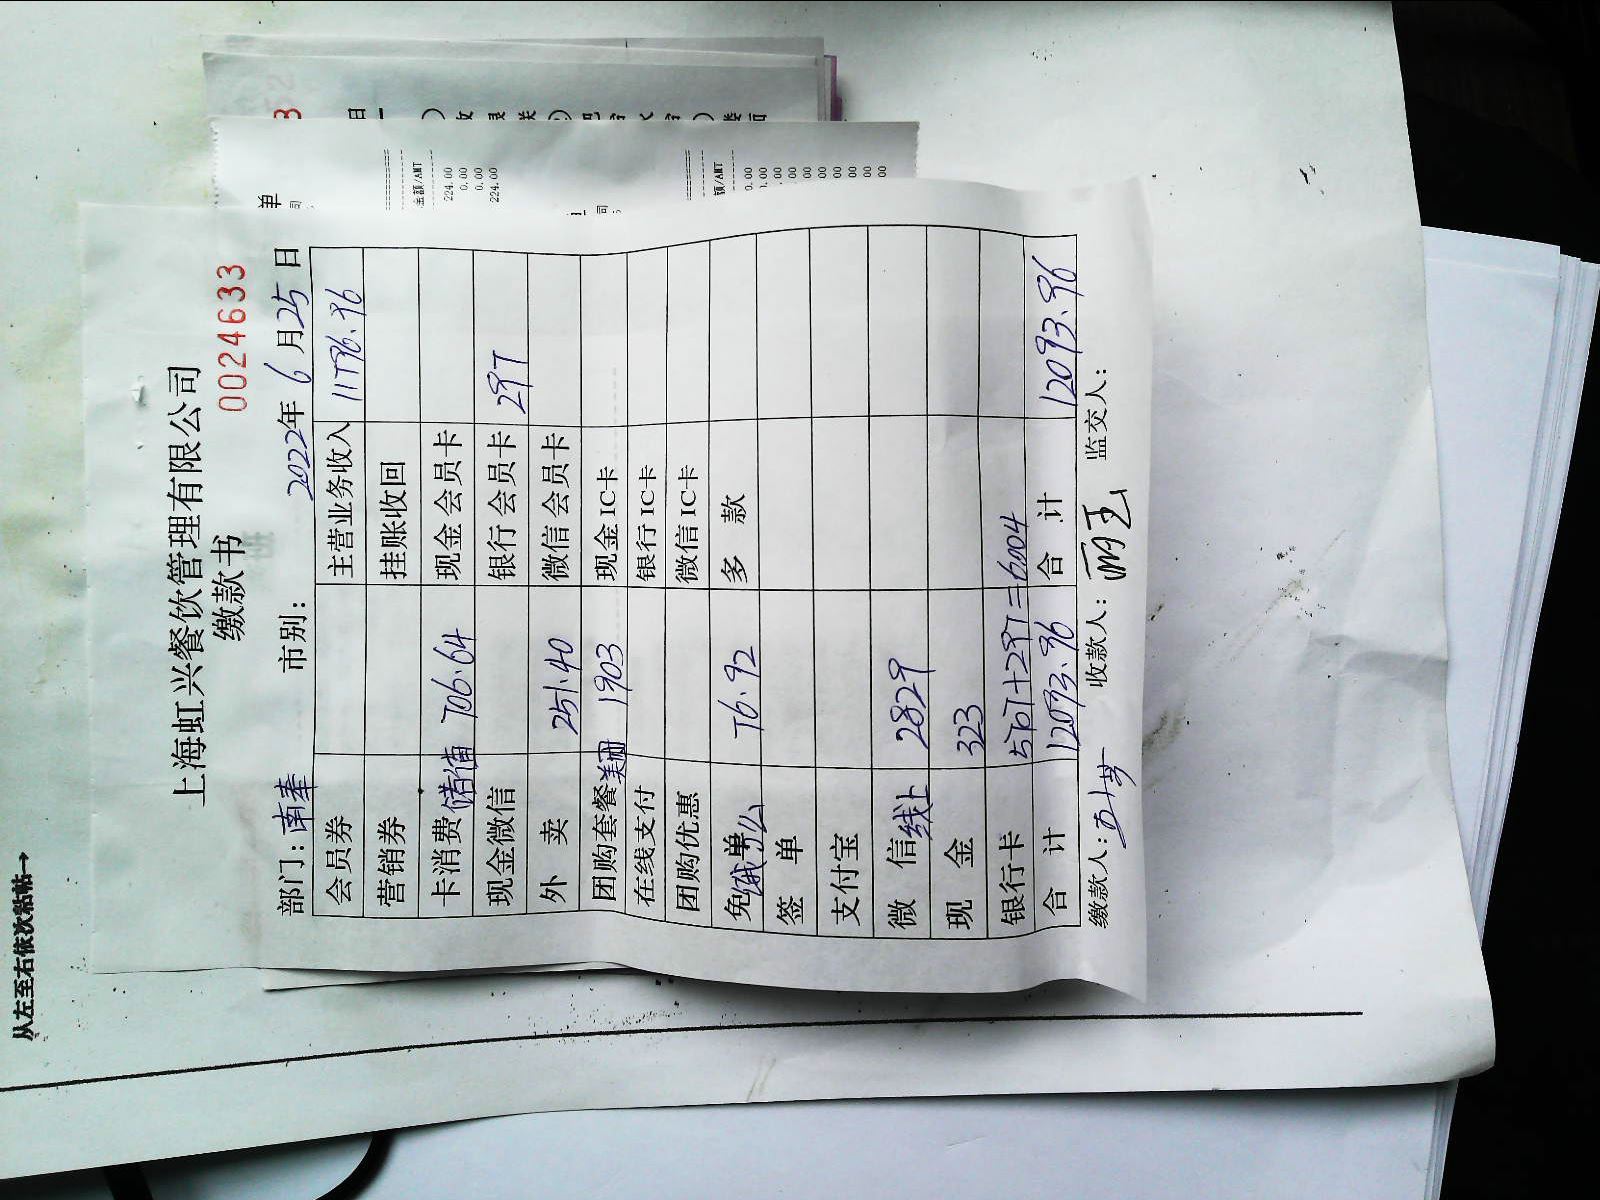 从左至右依次粘帖→
上海虹兴餐饮管理有限公司
缴款书
0024633
部门：南奉 市别： 2022年6月25日
会员券 主营业务收入 11796.96
营销券 挂账收回
卡消费储值 706.64 现金会员卡
现金微信 银行会员卡 297
外 卖 251.40 微信会员卡
团购套餐美团 1903 现金IC卡
在线支付 银行IC卡
团购优惠 微信IC卡
免单 76.92 多 款
签 单
支付宝
微 信线上 2829
现 金 323
银行卡 5707+297=6004
合 计 12093.96 合 计 12093.96
缴款人： 收款人： 监交人：
单
司
金额/AMT
224.00
0.00
0.00
224.00
司
额/AMT
0.00
0.00
.00
00
00
00
00
00
00